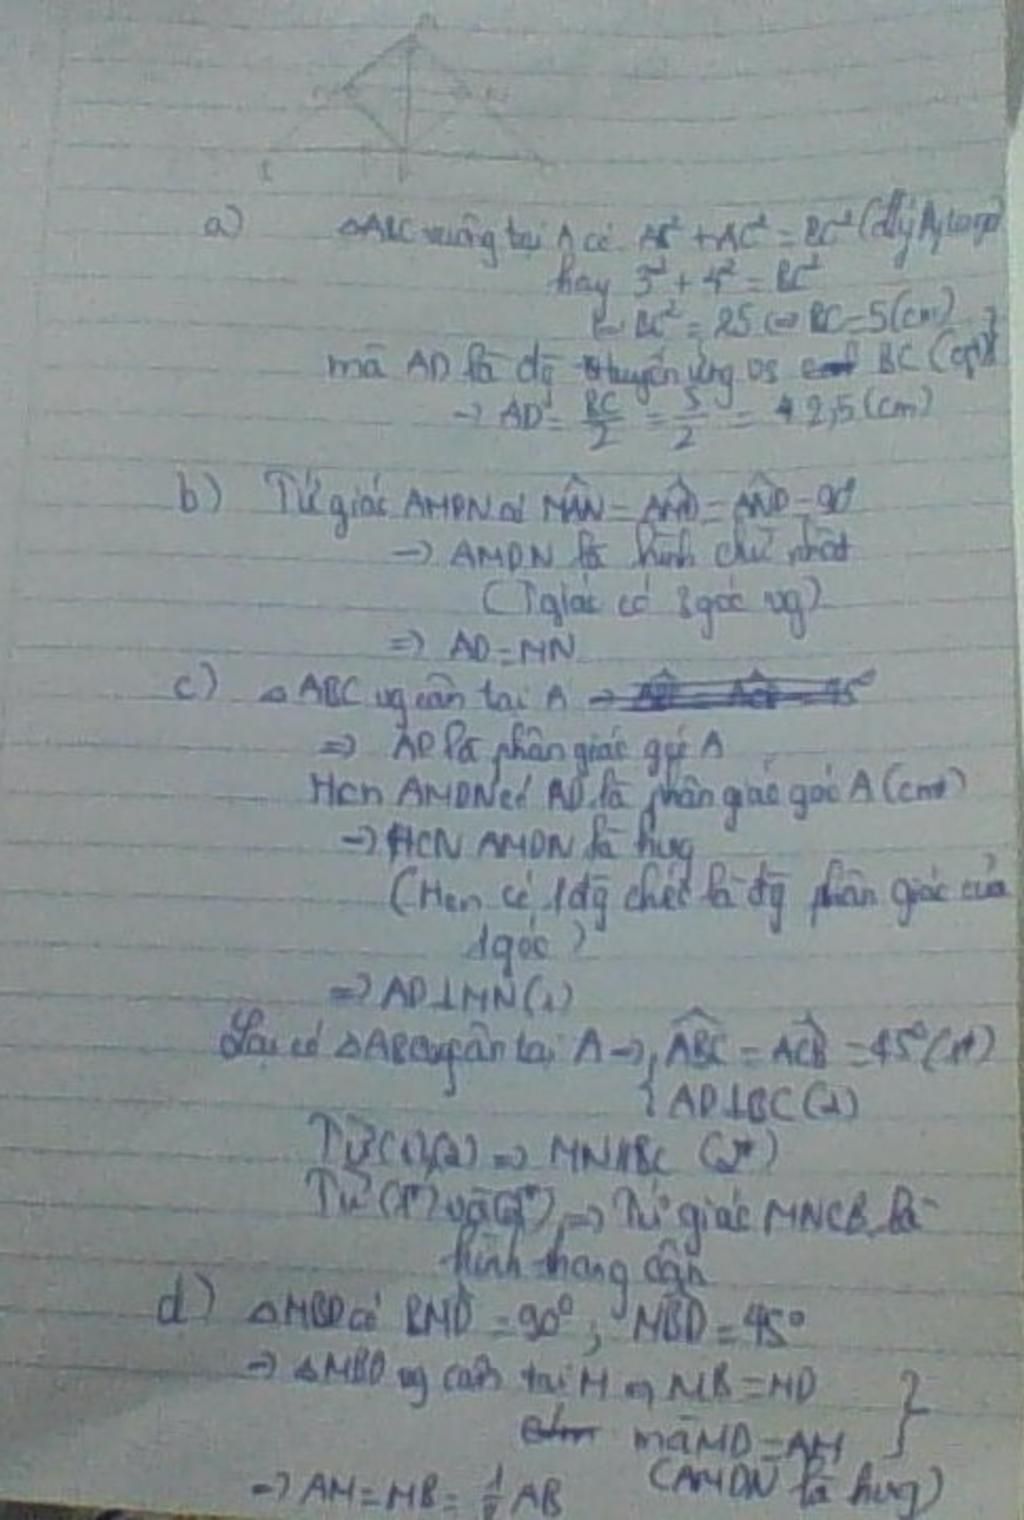 a) △ABC vuông tại A có AB² + AC² = BC² (đlý Pytago)
hay 3² + 4² = BC²
BC² = 25 ⇔ BC = 5 (cm)
mà AD là đg tuyến ứng vs BC (gt)
→ AD = BC/2 = 5/2 = 2,5 (cm)
b) Tứ giác AMDN có MÂN = AMD = AND = 90°
→ AMDN là hình chữ nhật
(Tgiác có 3 góc vg)
⇒ AD = MN
c) △ABC vg cân tại A
⇒ AD là phân giác góc A
Hcn AMDN có AD là phân giác góc A (cmt)
→ HCN AMDN là hvg
(Hcn có 1 đg chéo là đg phân giác của
1 góc)
⇒ AD ⊥ MN (1)
Lại có △ABC vg cân tại A → { ABC = ACB = 45° (1*)
AD ⊥ BC (2)
Từ (1)(2) ⇒ MN // BC (2*)
Từ (1*) và (2*) ⇒ Tứ giác MNCB là
hình thang cân
d) △MBD có BMD = 90°; MBD = 45°
→ △MBD vg cân tại M ⇒ MB = MD
mà MD = AM }
(AMDN là hvg)
→ AM = MB = 1/2 AB